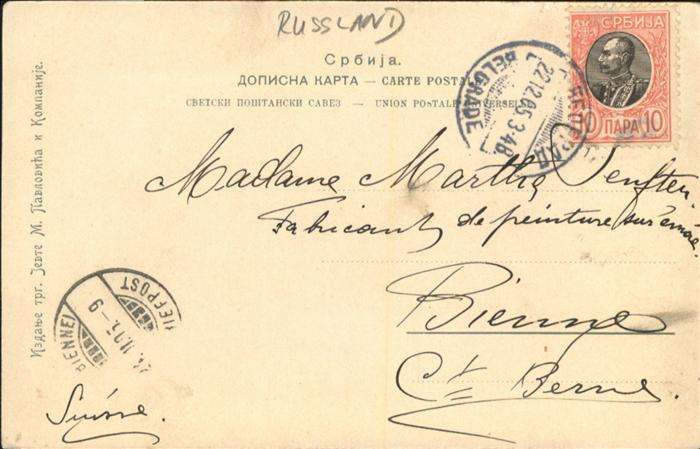 RUSSLAND
СРБИЈА
10 ПАРА 10
Србија.
ДОПИСНА КАРТА — CARTE POSTALE
СВЕТСКИ ПОШТАНСКИ САВЕЗ — UNION POSTALE UNIVERSELLE
БЕОГРАД
22.12.05.3-4S.
BELGRADE
Madame Martha
Fabricant de peinture sur émail
Bienne
Ct. Berne
Suisse.
BRIEFPOST
BIENNE
Издање трг. Јевте М. Павловића и Компаније.